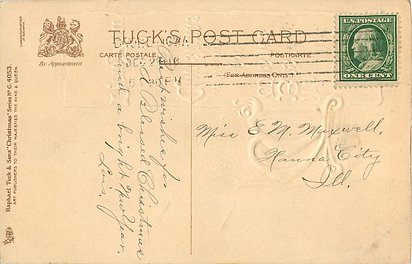 TUCK'S POST CARD
CARTE POSTALE
POSTKARTE
FOR ADDRESS ONLY
By Appointment
U.S. POSTAGE
ONE CENT
DEC 2
Raphael Tuck & Sons' "Christmas" Series No C. 4053.
ART PUBLISHERS TO THEIR MAJESTIES THE KING & QUEEN
wishes for
a Blessed Christmas
and a bright New Year.
Miss E M. Maxwell,
Hanna City
Ill.